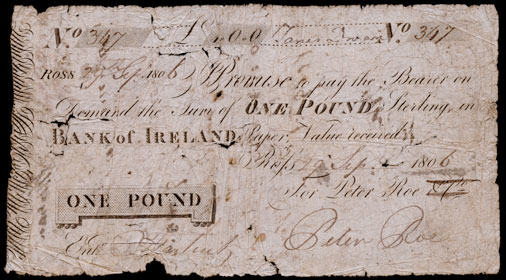 No 347 £1"0"0 No 347
ROSS 29th Sep. 1806 I Promise to pay the Bearer on
Demand the Sum of ONE POUND Sterling, in
BANK of IRELAND Paper, Value received
Ross 29 Sep. 1806
For Peter Roe
ONE POUND
Entd. Peter Roe